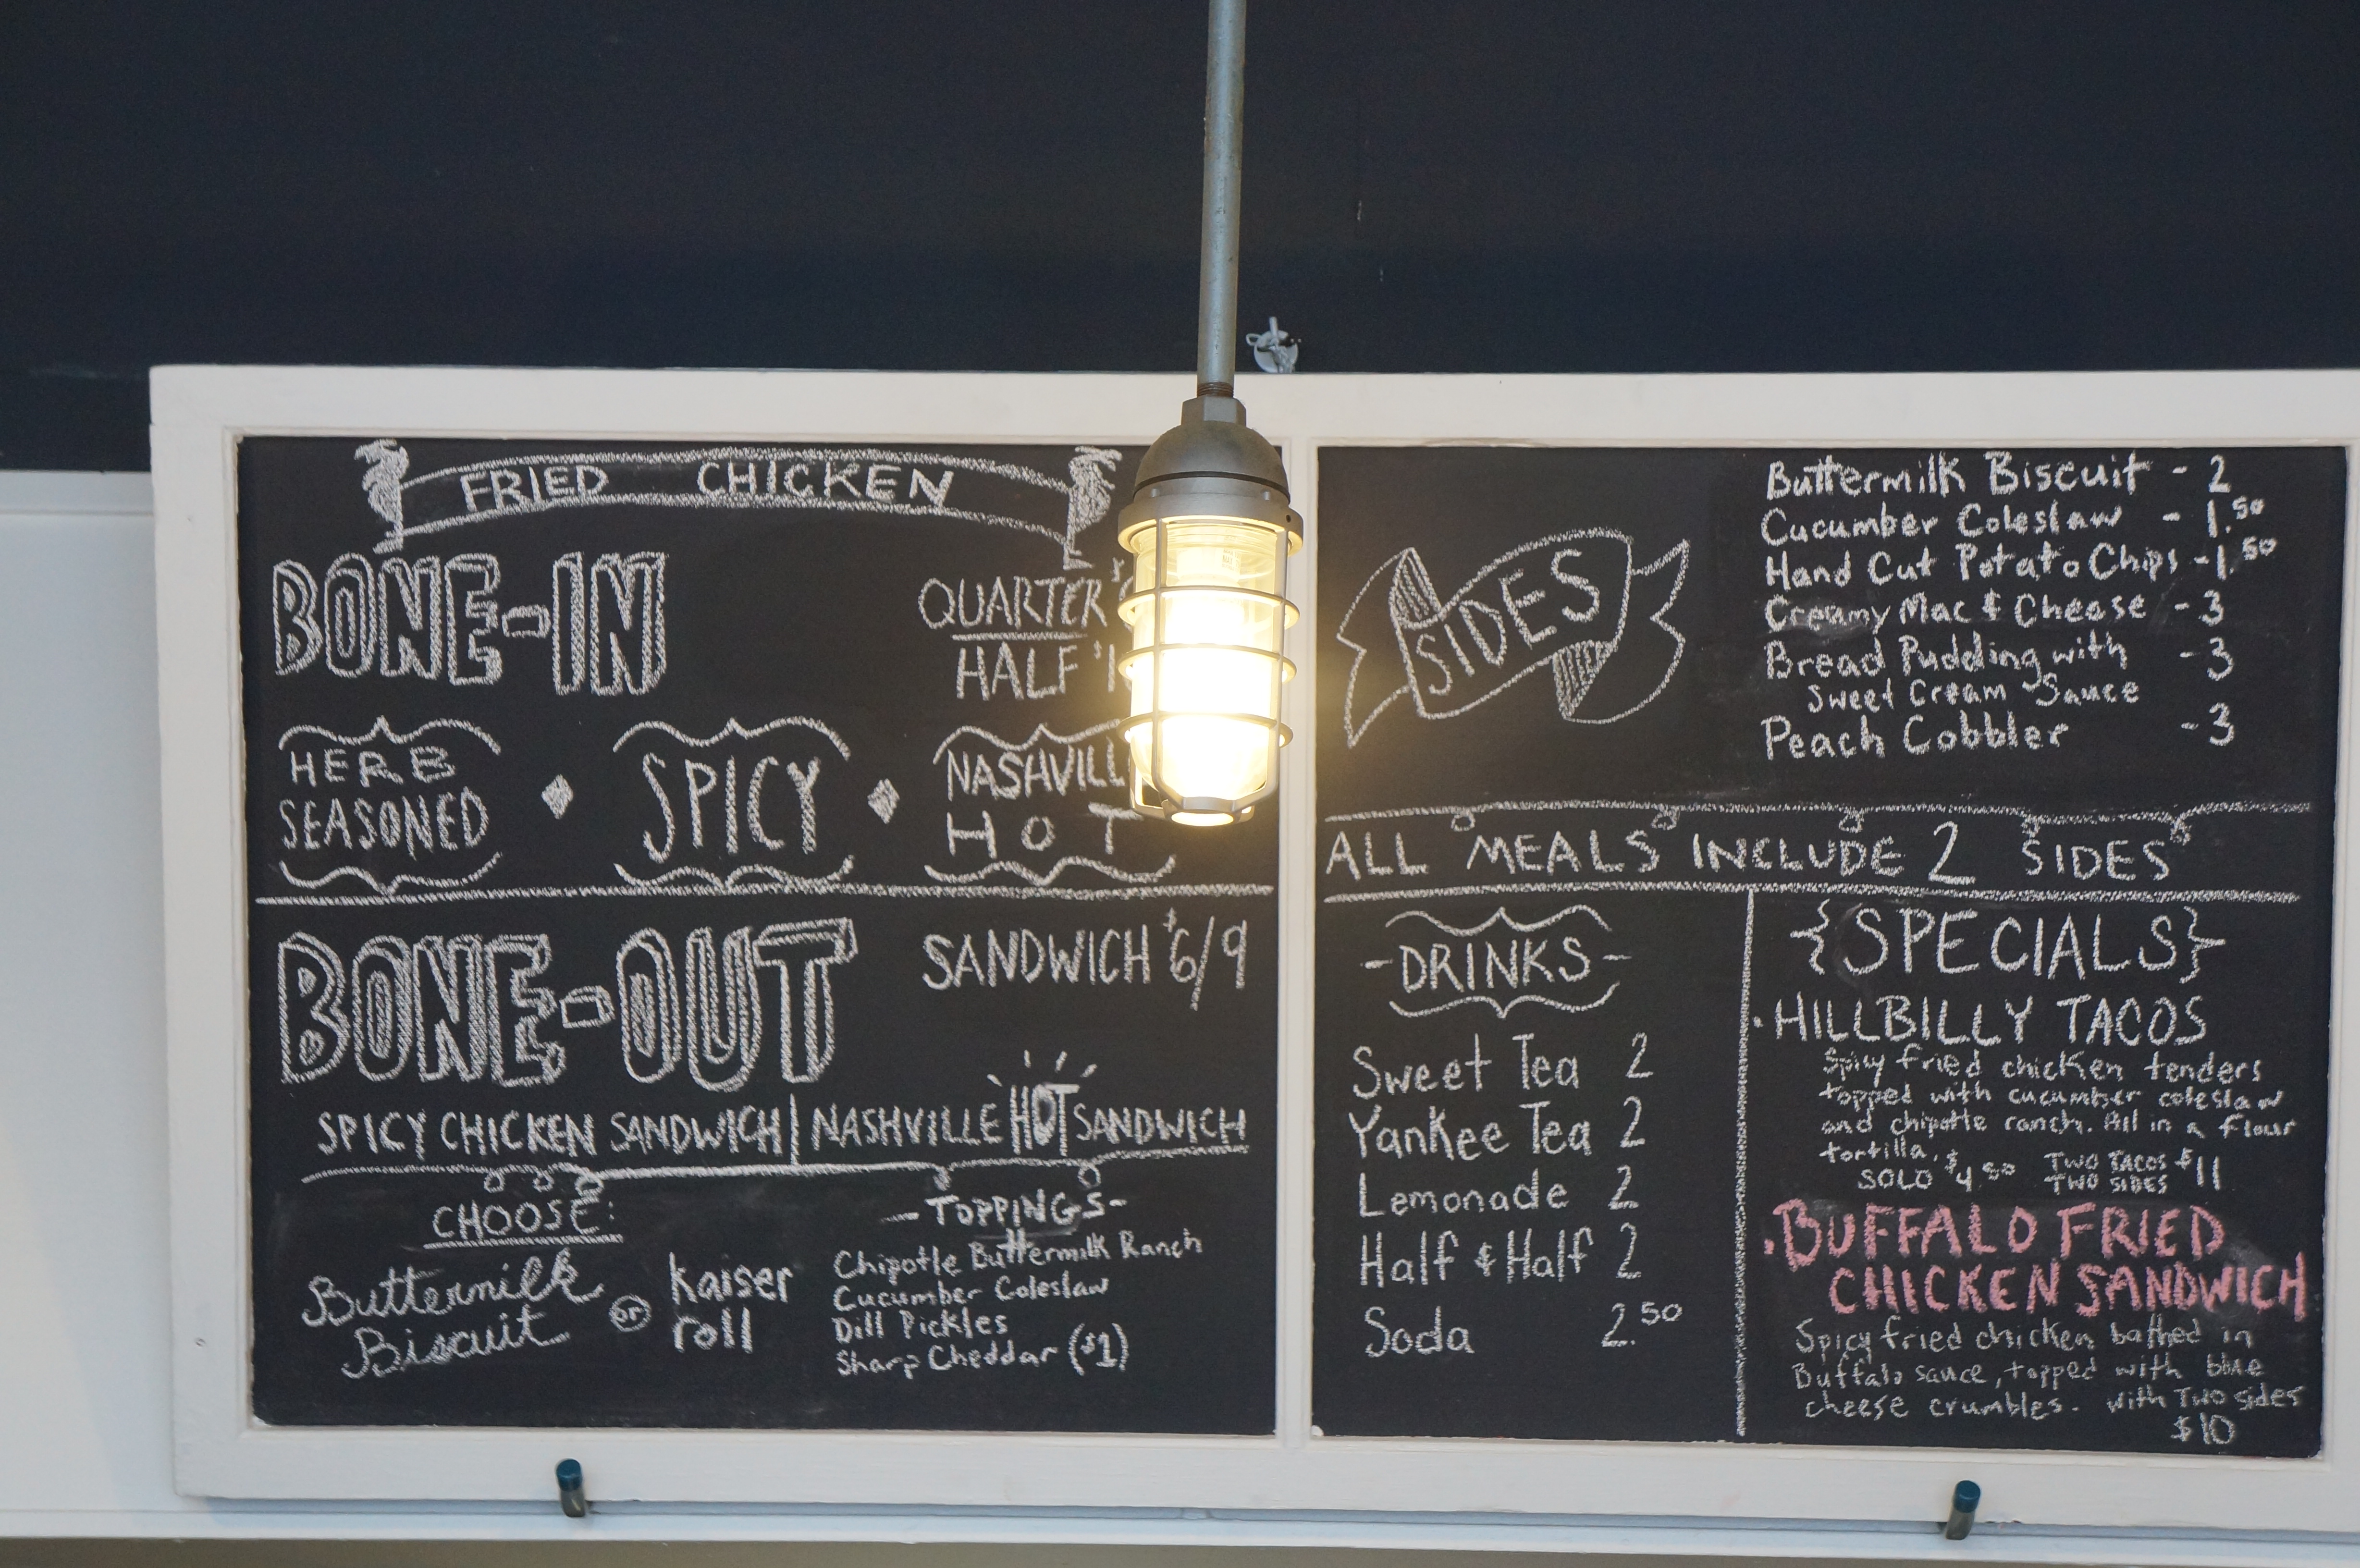 FRIED CHICKEN
BONE-IN
QUARTER $
HALF $1
HERB
SEASONED
SPICY
NASHVILL
HOT
BONE-OUT
SANDWICH $6/9
SPICY CHICKEN SANDWICH | NASHVILLE HOT SANDWICH
CHOOSE:
Buttermilk
Biscuit
or
kaiser
roll
-TOPPINGS-
Chipotle Buttermilk Ranch
Cucumber Coleslaw
Dill Pickles
Sharp Cheddar ($1)
SIDES
Buttermilk Biscuit - 2
Cucumber Coleslaw - 1.50
Hand Cut Potato Chips - 1.50
Creamy Mac & Cheese - 3
Bread Pudding with - 3
Sweet Cream Sauce
Peach Cobbler - 3
ALL MEALS INCLUDE 2 SIDES
-DRINKS-
Sweet Tea 2
Yankee Tea 2
Lemonade 2
Half & Half 2
Soda 2.50
{SPECIALS}
· HILLBILLY TACOS
Spicy fried chicken tenders
topped with cucumber coleslaw
and chipotle ranch. All in a flour
tortilla.
SOLO $4.50 TWO TACOS $11
TWO SIDES
· BUFFALO FRIED
CHICKEN SANDWICH
Spicy fried chicken bathed in
Buffalo sauce, topped with blue
cheese crumbles. with Two sides
$10